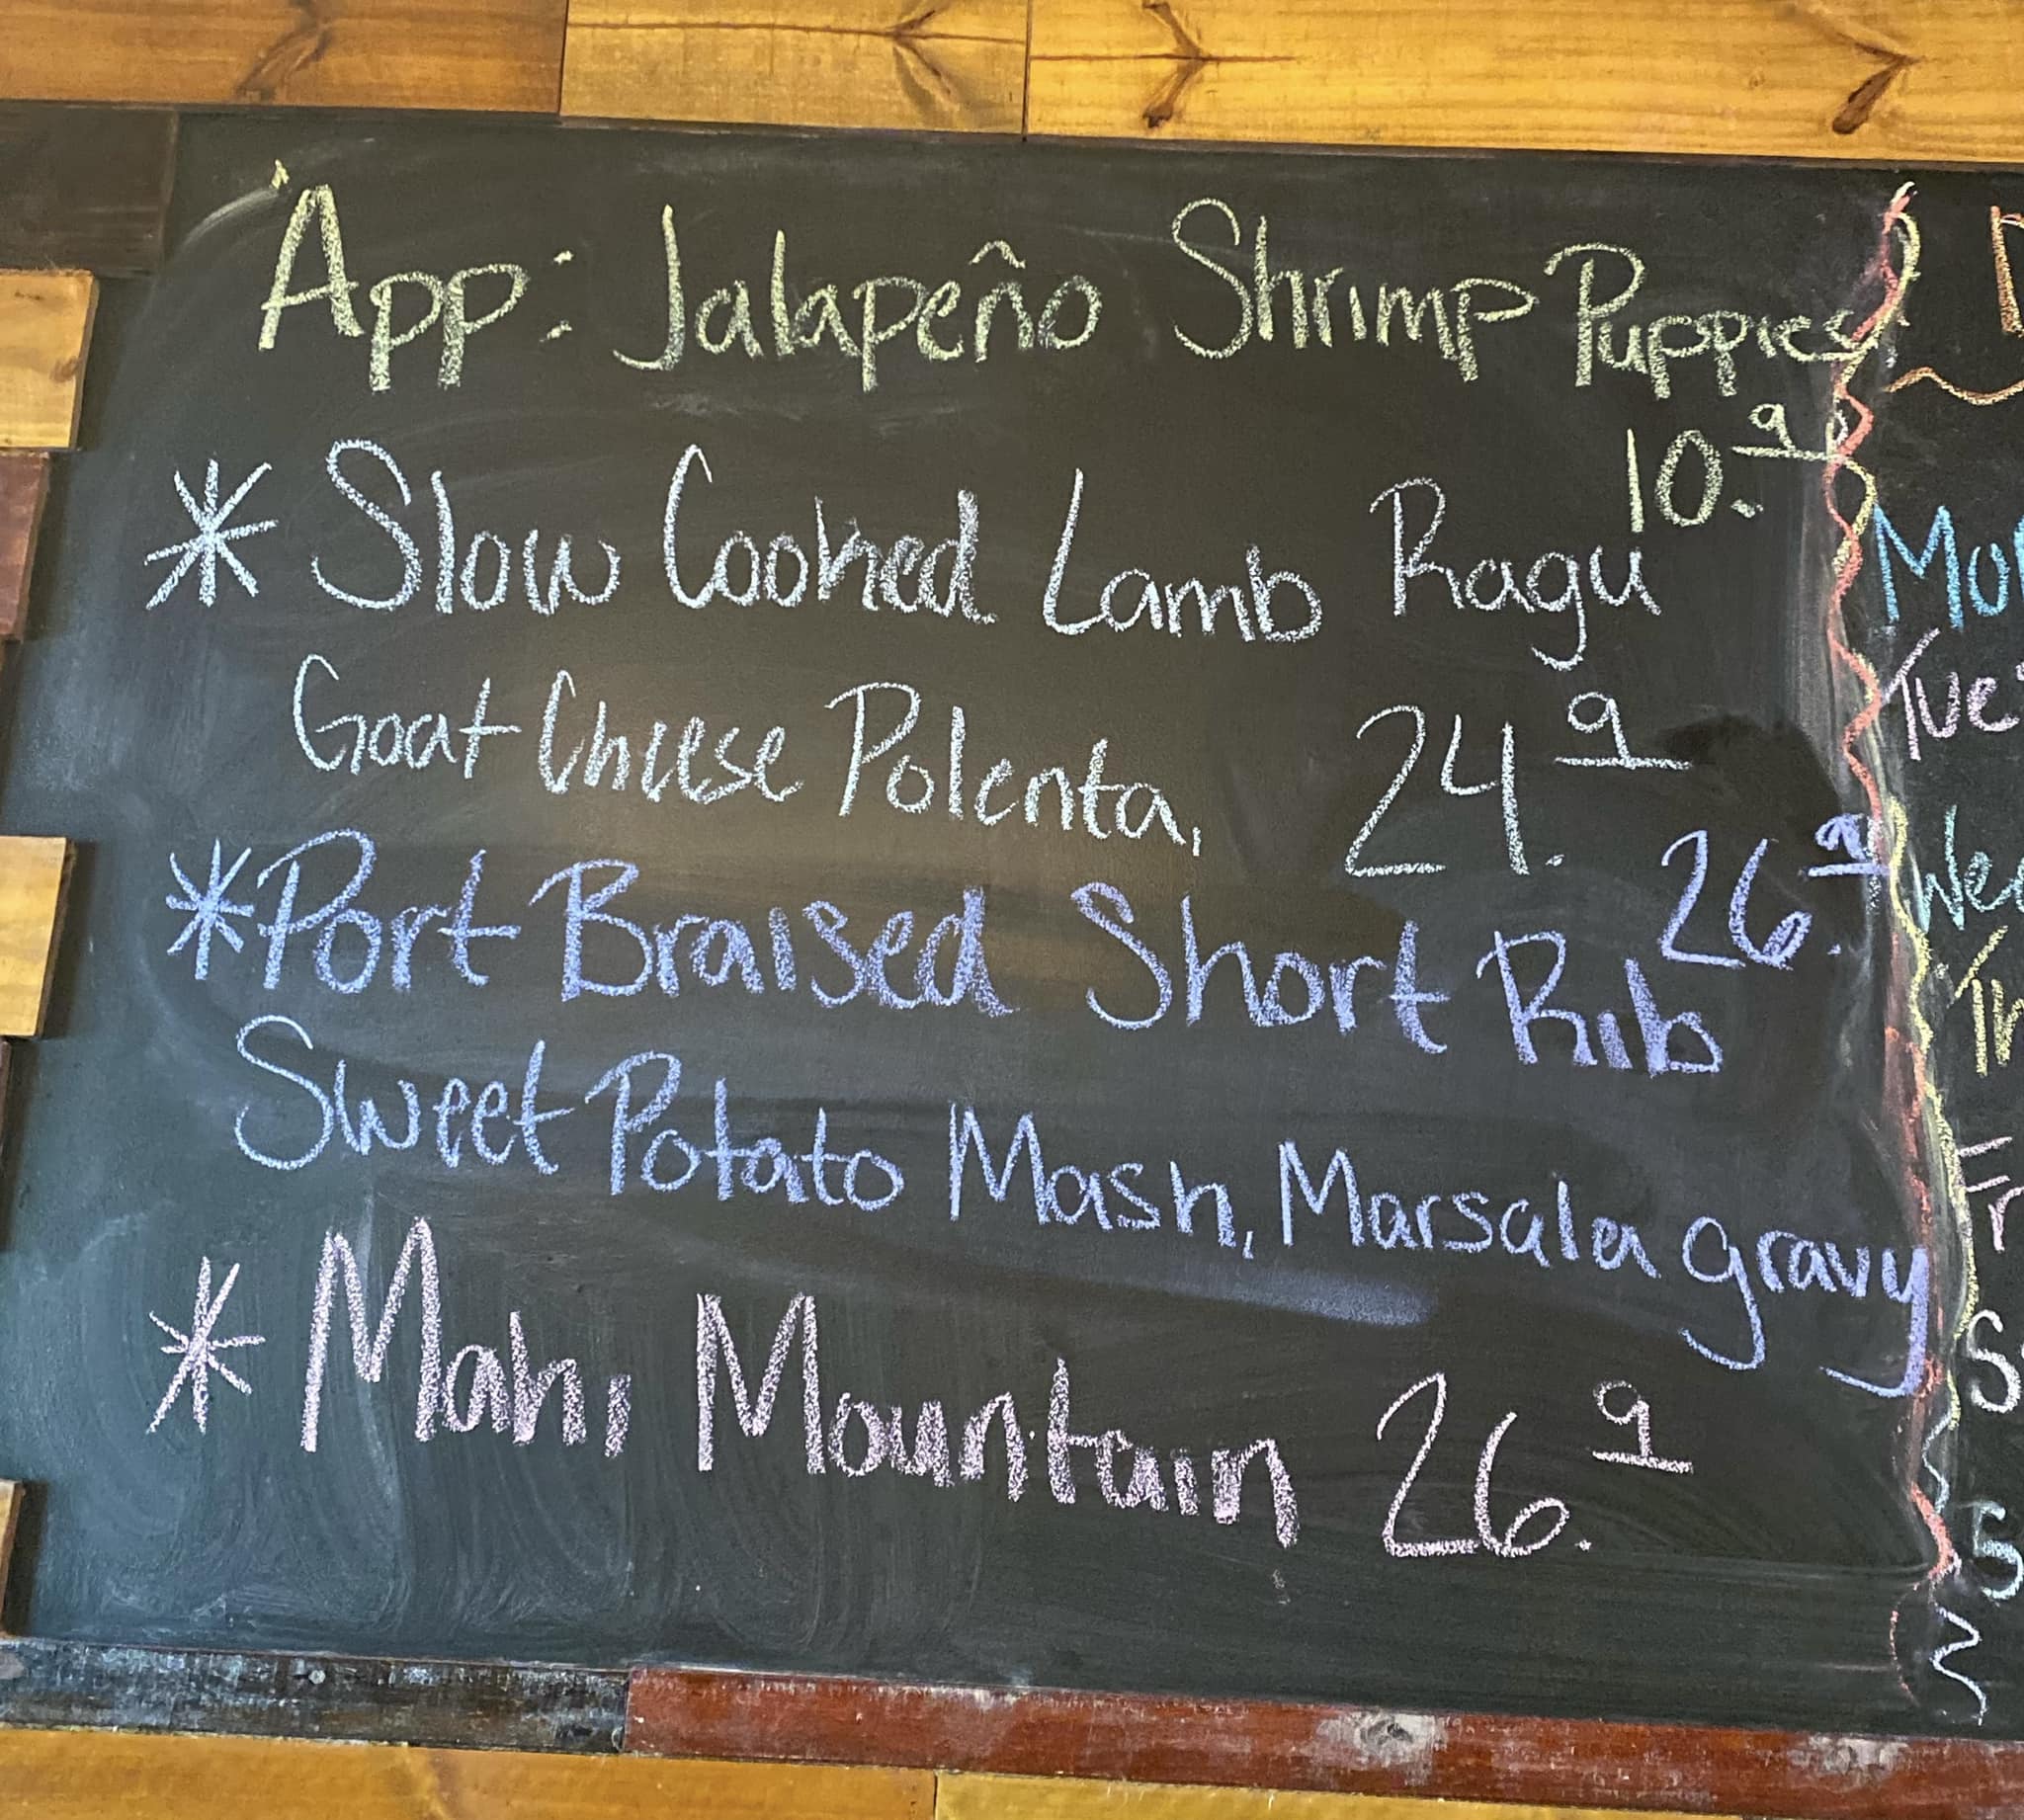 App: Jalapeño Shrimp Puppies
10.9
* Slow Cooked Lamb Ragu
Goat Cheese Polenta, 24.9
* Port Braised Short Rib 26.9
Sweet Potato Mash, Marsala gravy
* Mahi Mountain 26.9